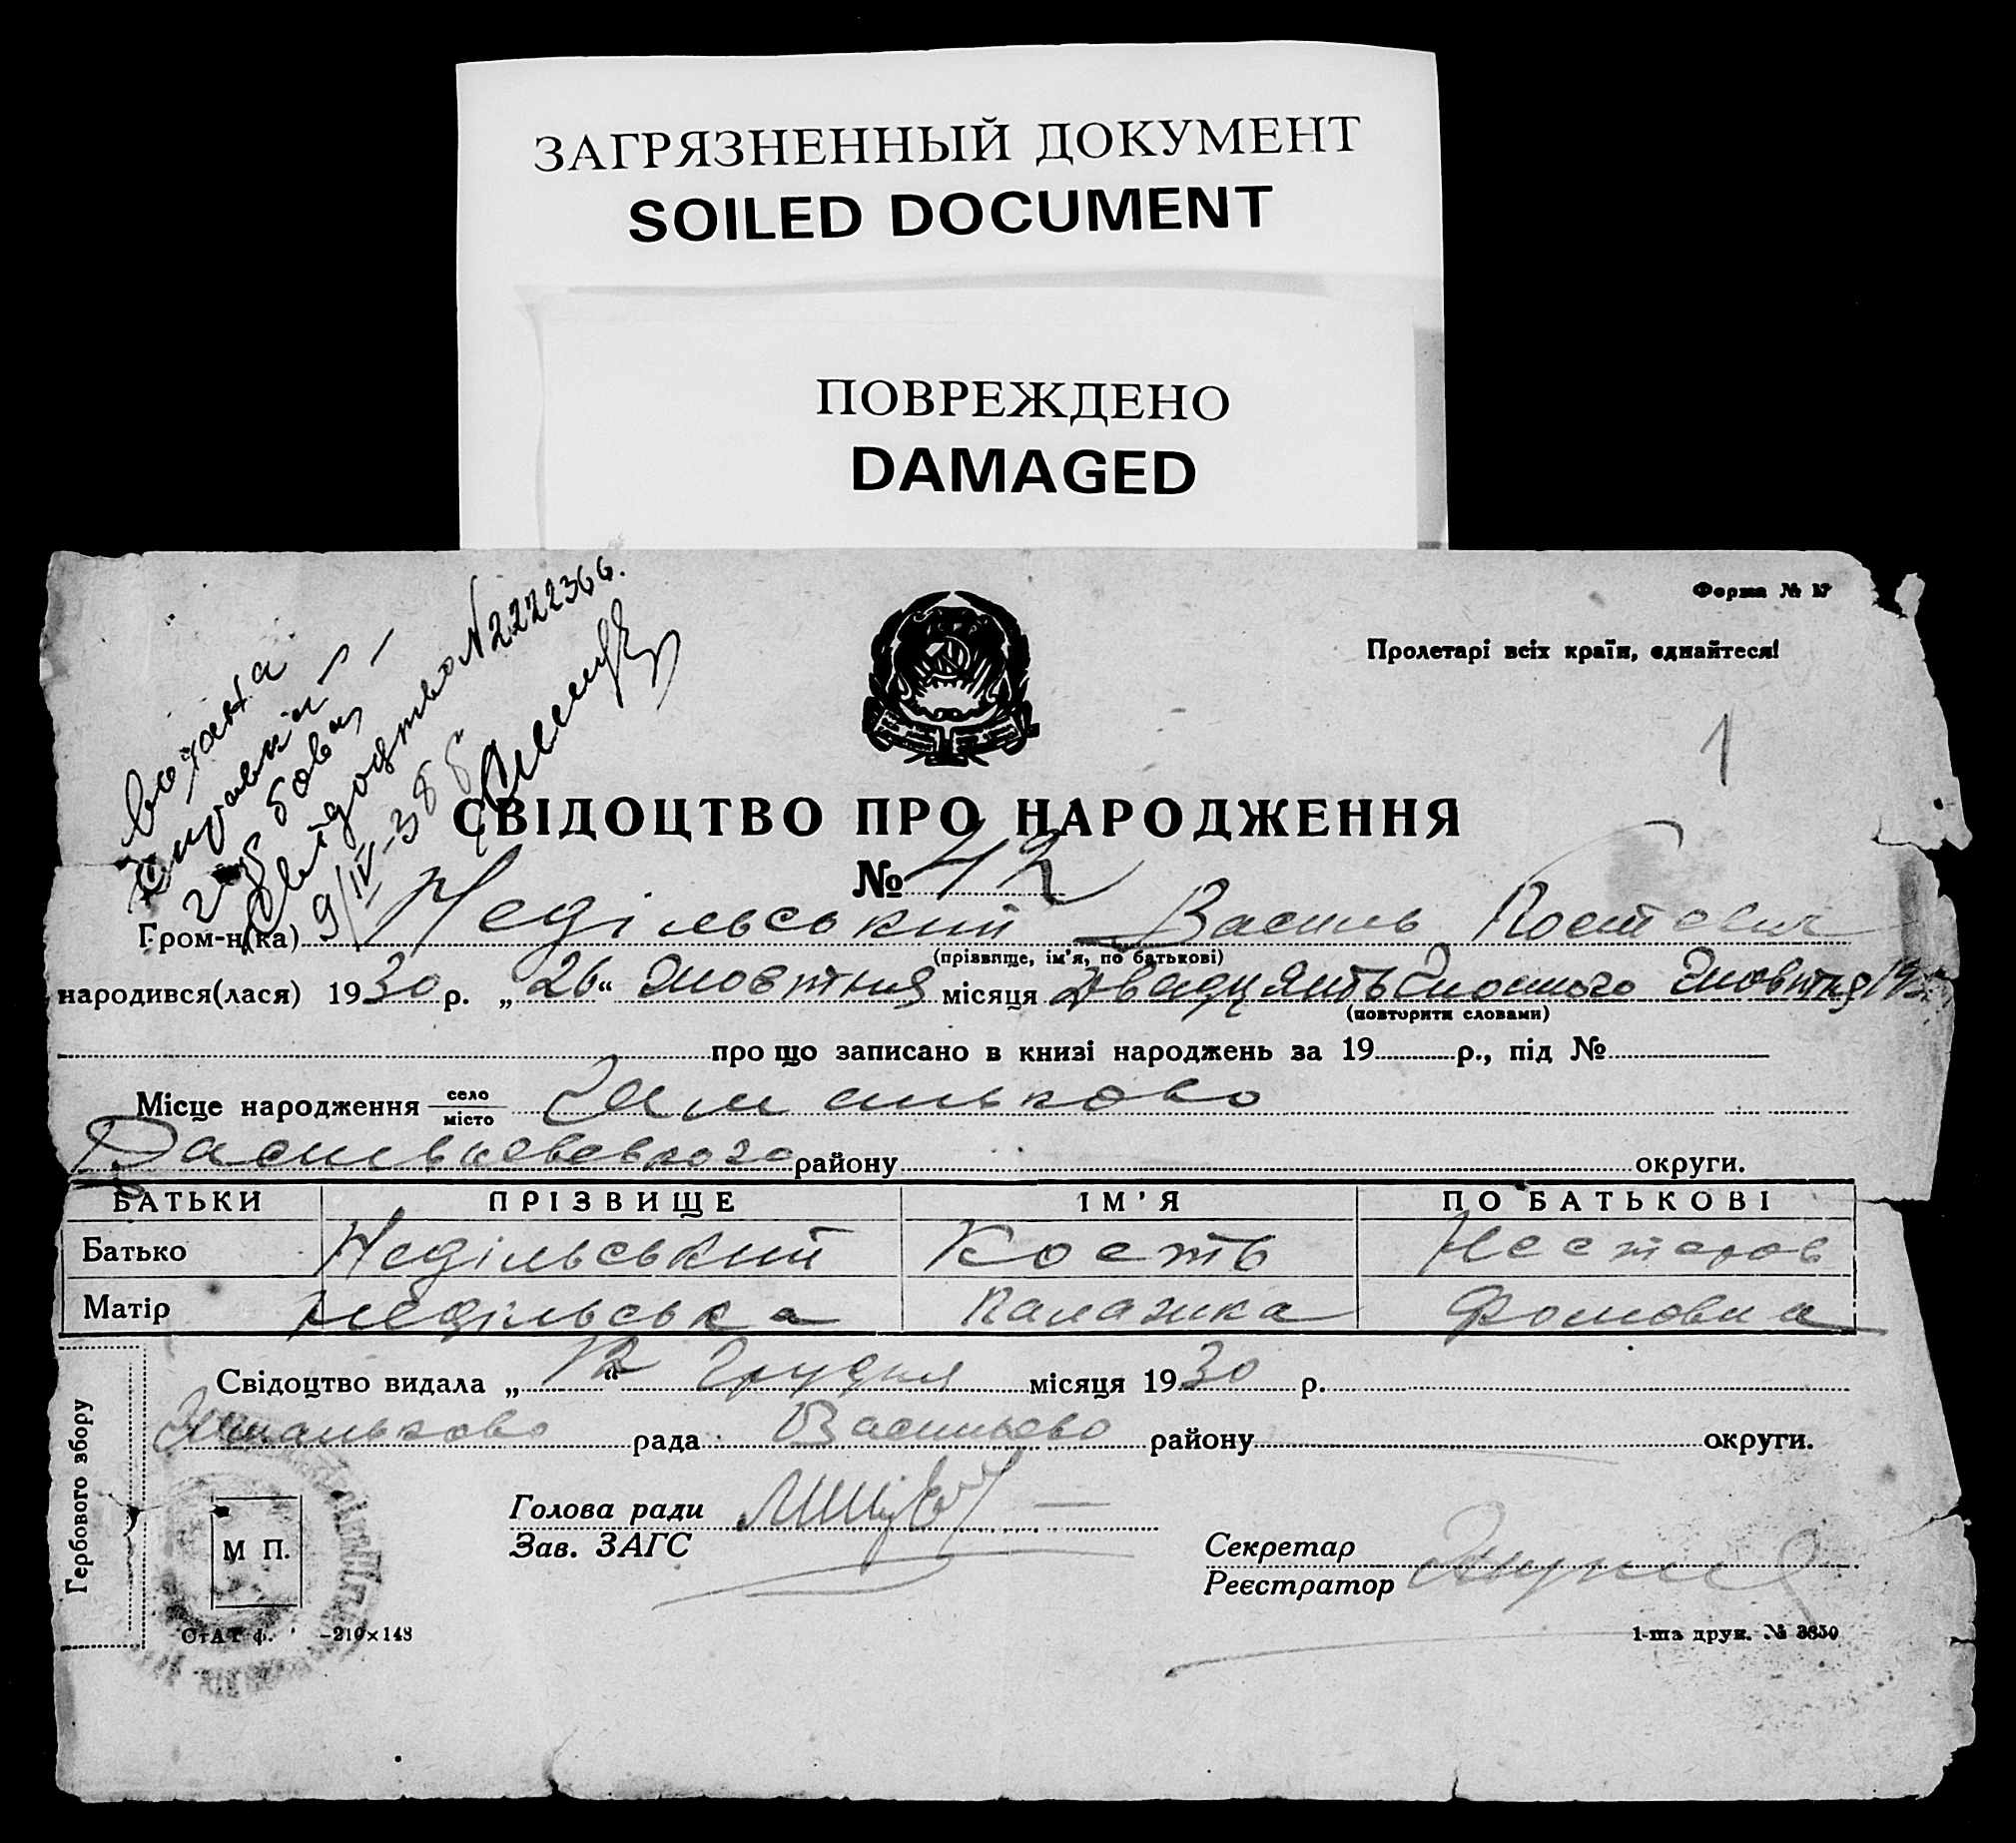 ЗАГРЯЗНЕННЫЙ ДОКУМЕНТ
SOILED DOCUMENT
ПОВРЕЖДЕНО
DAMAGED
Форма № 17
Пролетарі всіх країн, єднайтеся!
1
видана
9/IV-38
Свідоцтво N 222236
СВІДОЦТВО ПРО НАРОДЖЕННЯ
№ 42
Гром-н(ка) Недільський Василь Костевич
(прізвище, ім'я, по батькові)
народився(лася) 1930 р. „26“ Жовтня місяця Двадцять Шостого Жовтня 19
(повторити словами)
про що записано в книзі народжень за 19 р., під №
Місце народження село
місто
Васильєвського району округи.
БАТЬКИ ПРІЗВИЩЕ ІМ'Я ПО БАТЬКОВІ
Батько Недільський Кость Нестеров
Матір Недільська Палажка Фомовна
Свідоцтво видала „12“ Грудня місяця 1930 р.
рада Васильево району округи.
Гербового збору
Голова ради
Зав. ЗАГС
М П.
Секретар
Реєстратор
ОтАТ ф. -210×148
1-ша друк. № 3850